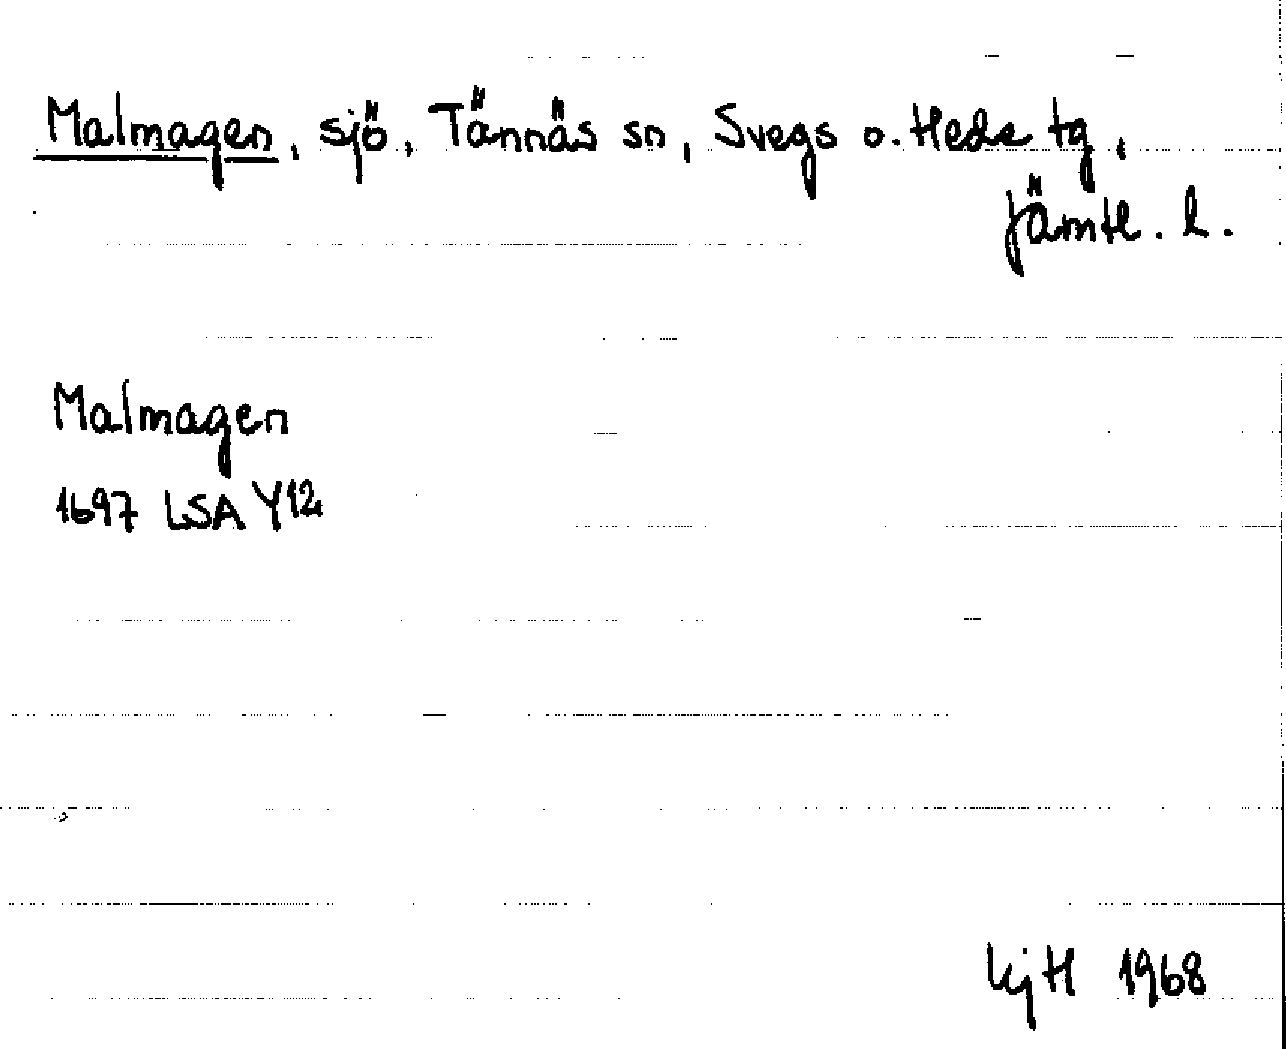 Malmagen, sjö, Tännäs sn, Svegs o. Heds tg,
Jämtl. l.
Malmagen
1697 LSA Y12
1968